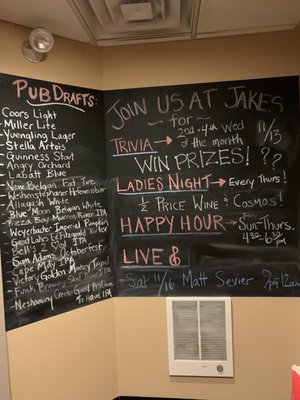 PUB DRAFTS
Coors Light
Miller Lite
Yuengling Lager
Stella Artois
Guinness Stout
Angry Orchard
Labatt Blue
New Belgian Fat Tire
Weihenstephaner Hefeweissbier
Allagash White
Blue Moon Belgian White
Weyerbacher Imperial Pumpkin
Great Lakes Fitzgerald Porter
Bell's 2 Hearted IPA
Sam Adams Oktoberfest
Cape May IPA
Victory Golden Monkey Tripel
Funk Brewing IPA
Neshaminy Creek Good Problem
To Have IPA
JOIN US AT JAKES
-for-
TRIVIA → 2nd + 4th Wed of the month 11/13
WIN PRIZES! ??
LADIES NIGHT → Every Thurs!
½ Price Wine & Cosmos!
HAPPY HOUR → Every Sun-Thurs.
4:30-6:30 PM
LIVE
Sat 11/16 Matt Sevier 9PM-12AM